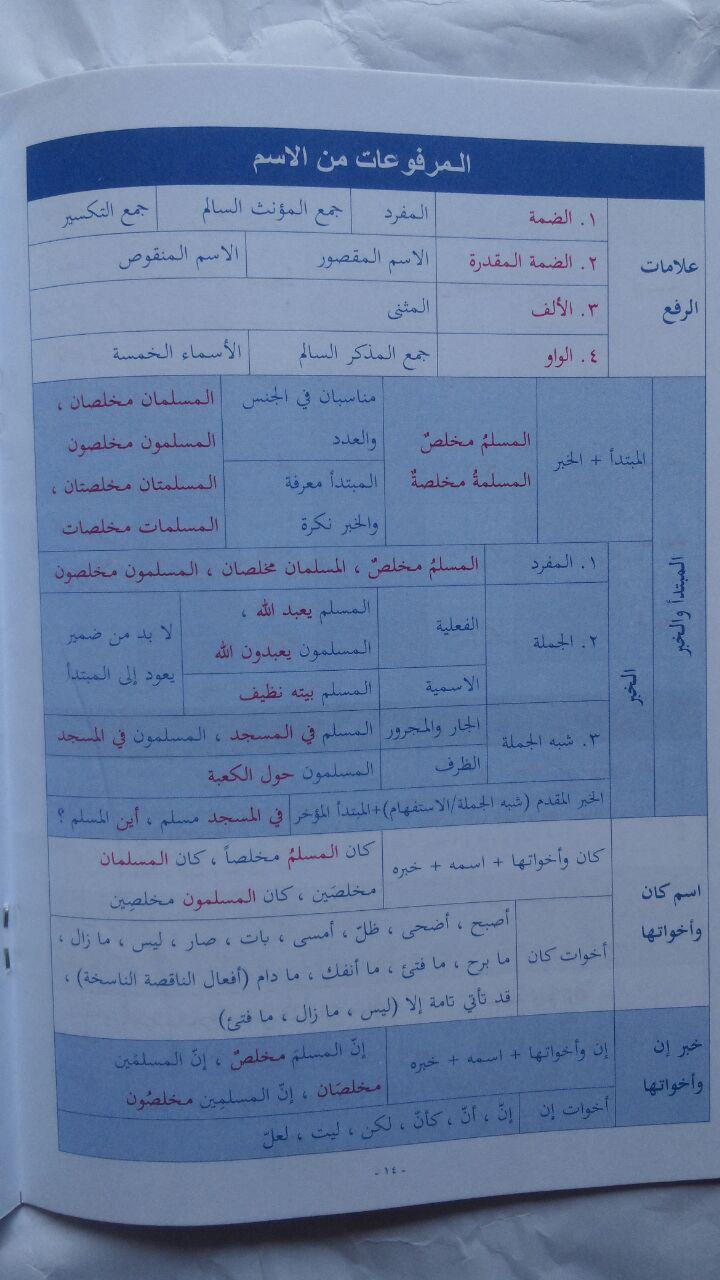 المرفوعات من الاسم
علامات الرفع
١. الضمة
المفرد
جمع المؤنث السالم
جمع التكسير
٢. الضمة المقدرة
الاسم المقصور
الاسم المنقوص
٣. الألف
المثنى
٤. الواو
جمع المذكر السالم
الأسماء الخمسة
المبتدأ والخبر
المبتدأ + الخبر
المسلمُ مخلصٌ
المسلمةُ مخلصةٌ
مناسبان في الجنس
والعدد
المبتدأ معرفة
والخبر نكرة
المسلمان مخلصان ،
المسلمون مخلصون
المسلمتان مخلصتان ،
المسلمات مخلصات
الخبر
١. المفرد
المسلمُ مخلصٌ ، المسلمان مخلصان ، المسلمون مخلصون
٢. الجملة
الفعلية
المسلم يعبد الله ،
المسلمون يعبدون الله
الاسمية
المسلم بيته نظيف
لا بد من ضمير
يعود إلى المبتدأ
٣. شبه الجملة
الجار والمجرور
المسلم في المسجد ، المسلمون في المسجد
الظرف
المسلمون حول الكعبة
الخبر المقدم (شبه الجملة/الاستفهام)+المبتدأ المؤخر
في المسجد مسلم ، أين المسلم ؟
اسم كان
وأخواتها
كان وأخواتها + اسمه + خبره
كان المسلمُ مخلصاً ، كان المسلمان
مخلصَين ، كان المسلمون مخلصِين
أخوات كان
أصبح ، أضحى ، ظلّ ، أمسى ، بات ، صار ، ليس ، ما زال ،
ما برح ، ما فتئ ، ما أنفك ، ما دام (أفعال الناقصة الناسخة) ،
قد تأتي تامة إلا (ليس ، ما زال ، ما فتئ)
خبر إن
وأخواتها
إن وأخواتها + اسمه + خبره
إنّ المسلمَ مخلصٌ ، إنّ المسلمَين
مخلصَان ، إنّ المسلمِين مخلصُون
أخوات إن
إنّ ، أنّ ، كأنّ ، لكن ، ليت ، لعلّ
- ١٤ -